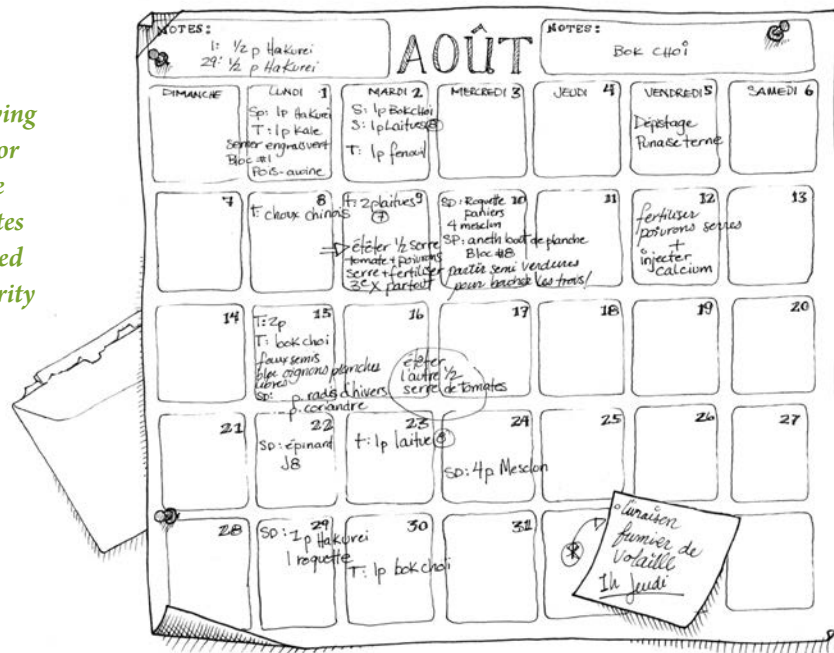 ving
or
e
tes
ed
rity
NOTES:
1: ½ p Hakurei
29: ½ p Hakurei
AOÛT
NOTES:
BOK CHOÏ
DIMANCHE
LUNDI 1
Sp: 1p Hakurei
T: 1p kale
Semer engrais vert
Bloc #1
Pois-avoine
MARDI 2
S: 1p Bok choi
S: 1p Laitues 8
T: 1p fenouil
MERCREDI 3
JEUDI 4
VENDREDI 5
Dépistage
Punaise terne
SAMEDI 6
7
8
T: choux chinois
9
T: 2p laitues
7
⇒ étêter ½ serre
tomate + poivrons
serre + fertiliser
3e X partout
10
SD: Roquette
paniers
4 mesclun
SP: aneth bout de planche
Bloc #8
partir semi verdures
pour bachée les trois!
11
12
fertiliser
poivrons serres
+
injecter
calcium
13
14
15
T: 2p
T: bok choi
faux semis
bloc oignons planches
libres
SD: p. radis d'hivers
p. coriandre
16
étêter
l'autre ½
serre de tomates
17
18
19
20
21
22
SD: épinard
J8
23
t: 1p laitue 8
24
SD: 4p Mesclon
25
26
27
28
29
SD: 1 p Hakurei
1 roquette
30
T: 1p bok choï
31
Livraison
fumier de
volaille
1h Jeudi